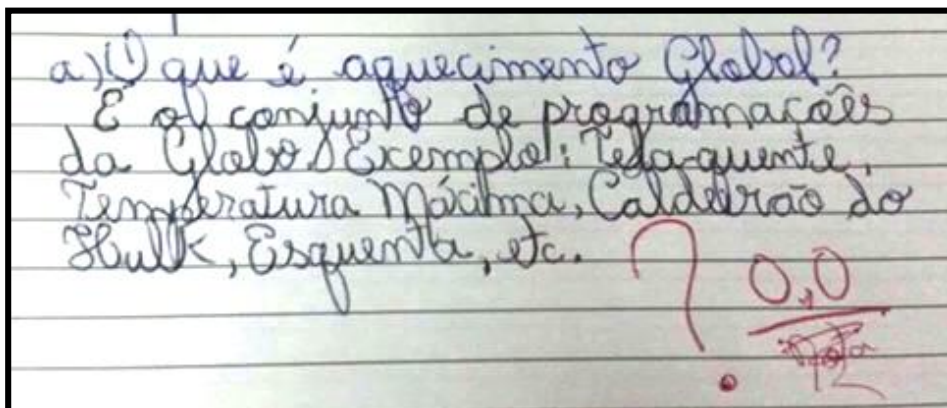 a) O que é aquecimento Global?
É o conjunto de programações
da Globo. Exemplo: Tela quente,
Temperatura Máxima, Caldeirão do
Hulk, Esquenta, etc.
? 0,0
Nota